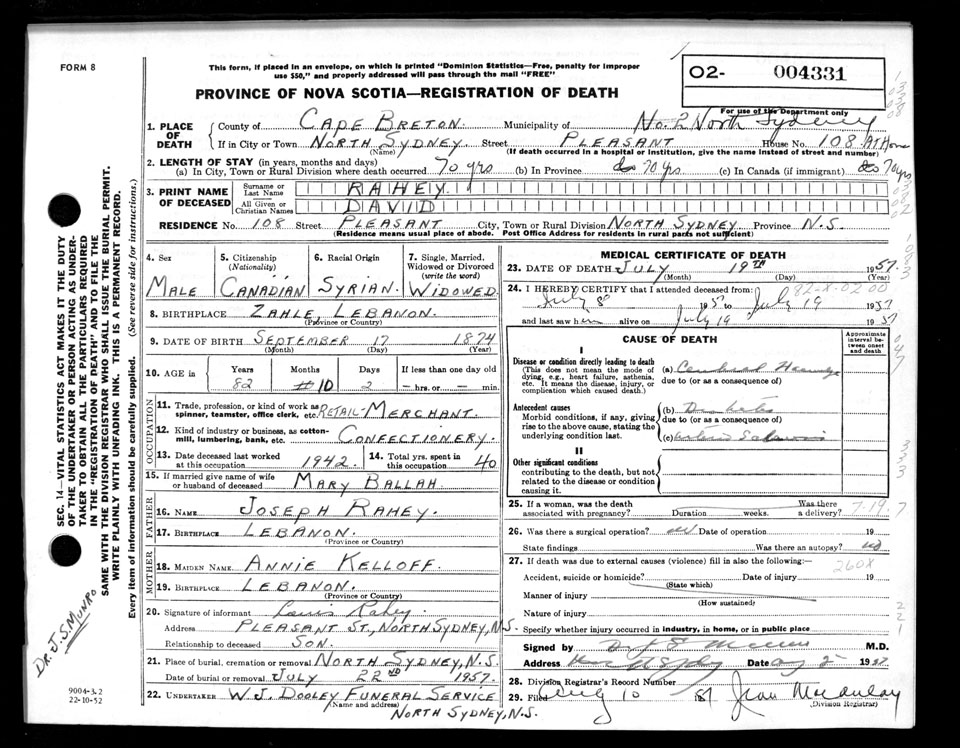 FORM 8
This form, if placed in an envelope, on which is printed "Dominion Statistics—Free, penalty for improper
use $50," and properly addressed will pass through the mail "FREE"
PROVINCE OF NOVA SCOTIA—REGISTRATION OF DEATH
02- 004331
For use of the Department only
1. PLACE OF DEATH { County of CAPE BRETON. Municipality of No. 2 North Sydney
If in City or Town NORTH SYDNEY. Street PLEASANT House No. 108. AT Home
(Name) (If death occurred in a hospital or institution, give the name instead of street and number)
2. LENGTH OF STAY (in years, months and days)
(a) In City, Town or Rural Division where death occurred 70 yrs (b) In Province do 70 yrs. (c) In Canada (if immigrant) do 70 yrs
3. PRINT NAME OF DECEASED { Surname or Last Name RAHEY.
All Given or Christian Names DAVID
RESIDENCE No. 108 Street PLEASANT City, Town or Rural Division NORTH SYDNEY Province N.S.
(Residence means usual place of abode. Post Office Address for residents in rural parts not sufficient)
4. Sex MALE
5. Citizenship (Nationality) CANADIAN
6. Racial Origin SYRIAN.
7. Single, Married, Widowed or Divorced (write the word) WIDOWED.
8. BIRTHPLACE ZAHLE, LEBANON.
(Province or Country)
9. DATE OF BIRTH SEPTEMBER 17 1874
(Month) (Day) (Year)
10. AGE IN Years 82 Months 10 Days 2 If less than one day — hrs. or — min.
OCCUPATION
11. Trade, profession, or kind of work as spinner, teamster, office clerk, etc. RETAIL-MERCHANT.
12. Kind of industry or business, as cotton-mill, lumbering, bank, etc. CONFECTIONERY.
13. Date deceased last worked at this occupation 1942. 14. Total yrs. spent in this occupation 40
15. If married give name of wife or husband of deceased MARY BALLAH.
FATHER
16. NAME JOSEPH RAHEY.
17. BIRTHPLACE LEBANON.
(Province or Country)
MOTHER
18. MAIDEN NAME ANNIE KELLOFF.
19. BIRTHPLACE LEBANON.
(Province or Country)
20. Signature of informant Louis Rahey.
Address PLEASANT ST., NORTH SYDNEY, N.S.
Relationship to deceased SON.
21. Place of burial, cremation or removal NORTH SYDNEY, N.S.
Date of burial or removal JULY 22ND 1957.
22. UNDERTAKER W. J. DOOLEY FUNERAL SERVICE
(Name and address)
NORTH SYDNEY, N.S.
MEDICAL CERTIFICATE OF DEATH
23. DATE OF DEATH JULY 19TH 1957.
(Month) (Day) (Year)
24. I HEREBY CERTIFY that I attended deceased from:
82-X-0200
July 8 1957 to July 19 1957
and last saw h alive on July 19 1957
CAUSE OF DEATH
Approximate interval between onset and death
I
Disease or condition directly leading to death
(This does not mean the mode of dying, e.g., heart failure, asthenia, etc. It means the disease, injury, or complication which caused death.)
(a) Cerebral
due to (or as a consequence of)
Antecedent causes
Morbid conditions, if any, giving rise to the above cause, stating the underlying condition last.
(b) Diabetes
due to (or as a consequence of)
(c)
II
Other significant conditions
contributing to the death, but not related to the disease or condition causing it.
25. If a woman, was the death associated with pregnancy? Duration weeks. Was there a delivery?
26. Was there a surgical operation? no Date of operation 19
State findings Was there an autopsy? no
27. If death was due to external causes (violence) fill in also the following:—
260X
Accident, suicide or homicide? Date of injury 19
(State which)
Manner of injury
(How sustained)
Nature of injury
Specify whether injury occurred in industry, in home, or in public place
Signed by M.D.
Address Date Aug 2 1957
28. Division Registrar's Record Number
29. Filed Aug 10 57 Jean Macaulay
(Division Registrar)
SEC. 14—VITAL STATISTICS ACT MAKES IT THE DUTY
OF THE UNDERTAKER OR PERSON ACTING AS UNDERTAKER
TO OBTAIN ALL THE PARTICULARS REQUIRED
IN THE "REGISTRATION OF DEATH" AND TO FILE THE
SAME WITH THE DIVISION REGISTRAR WHO SHALL ISSUE THE BURIAL PERMIT.
WRITE PLAINLY WITH UNFADING INK. THIS IS A PERMANENT RECORD.
Every item of information should be carefully supplied. (See reverse side for instructions.)
DR. J. S. MUNRO
9004-3.2
22-10-52